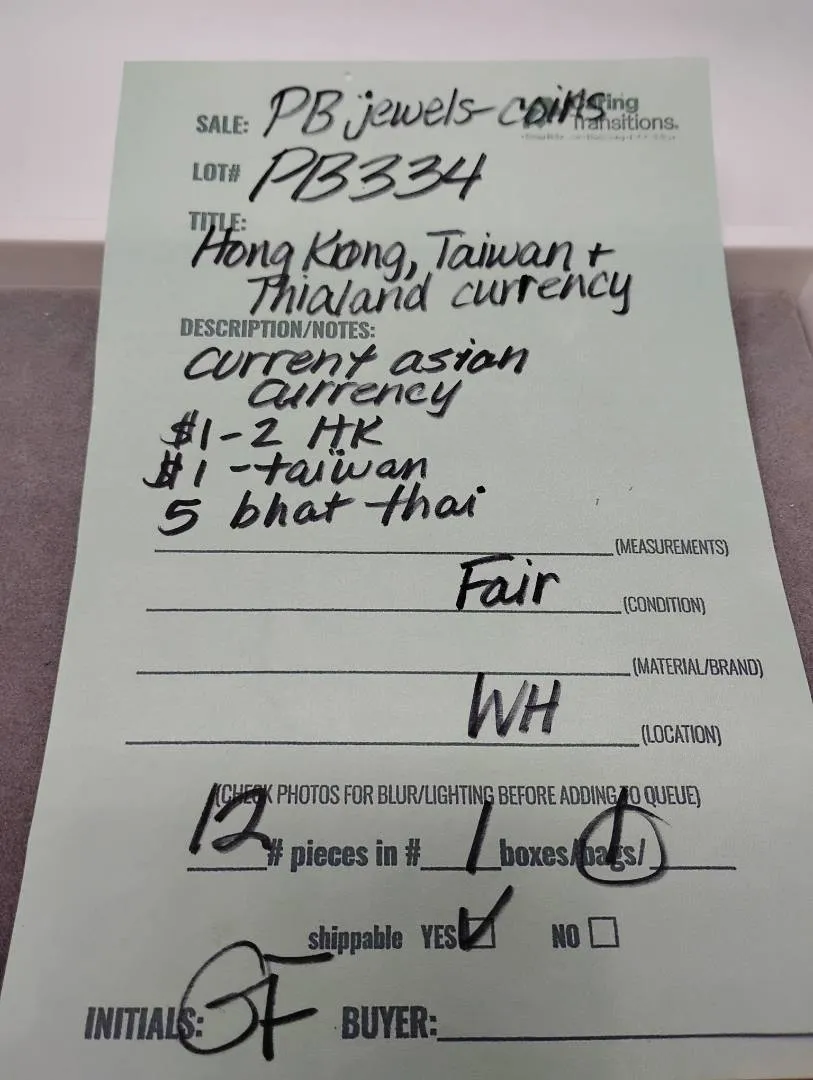 SALE: PB jewels-coins
Caring Transitions.
LOT# PB334
TITLE:
Hong Kong, Taiwan +
Thialand currency
DESCRIPTION/NOTES:
current asian
currency
$1-2 HK
$1-taiwan
5 bhat thai
(MEASUREMENTS)
Fair (CONDITION)
(MATERIAL/BRAND)
WH (LOCATION)
(CHECK PHOTOS FOR BLUR/LIGHTING BEFORE ADDING TO QUEUE)
12 # pieces in # 1 boxes/bags/
shippable YES NO
INITIALS: BUYER: